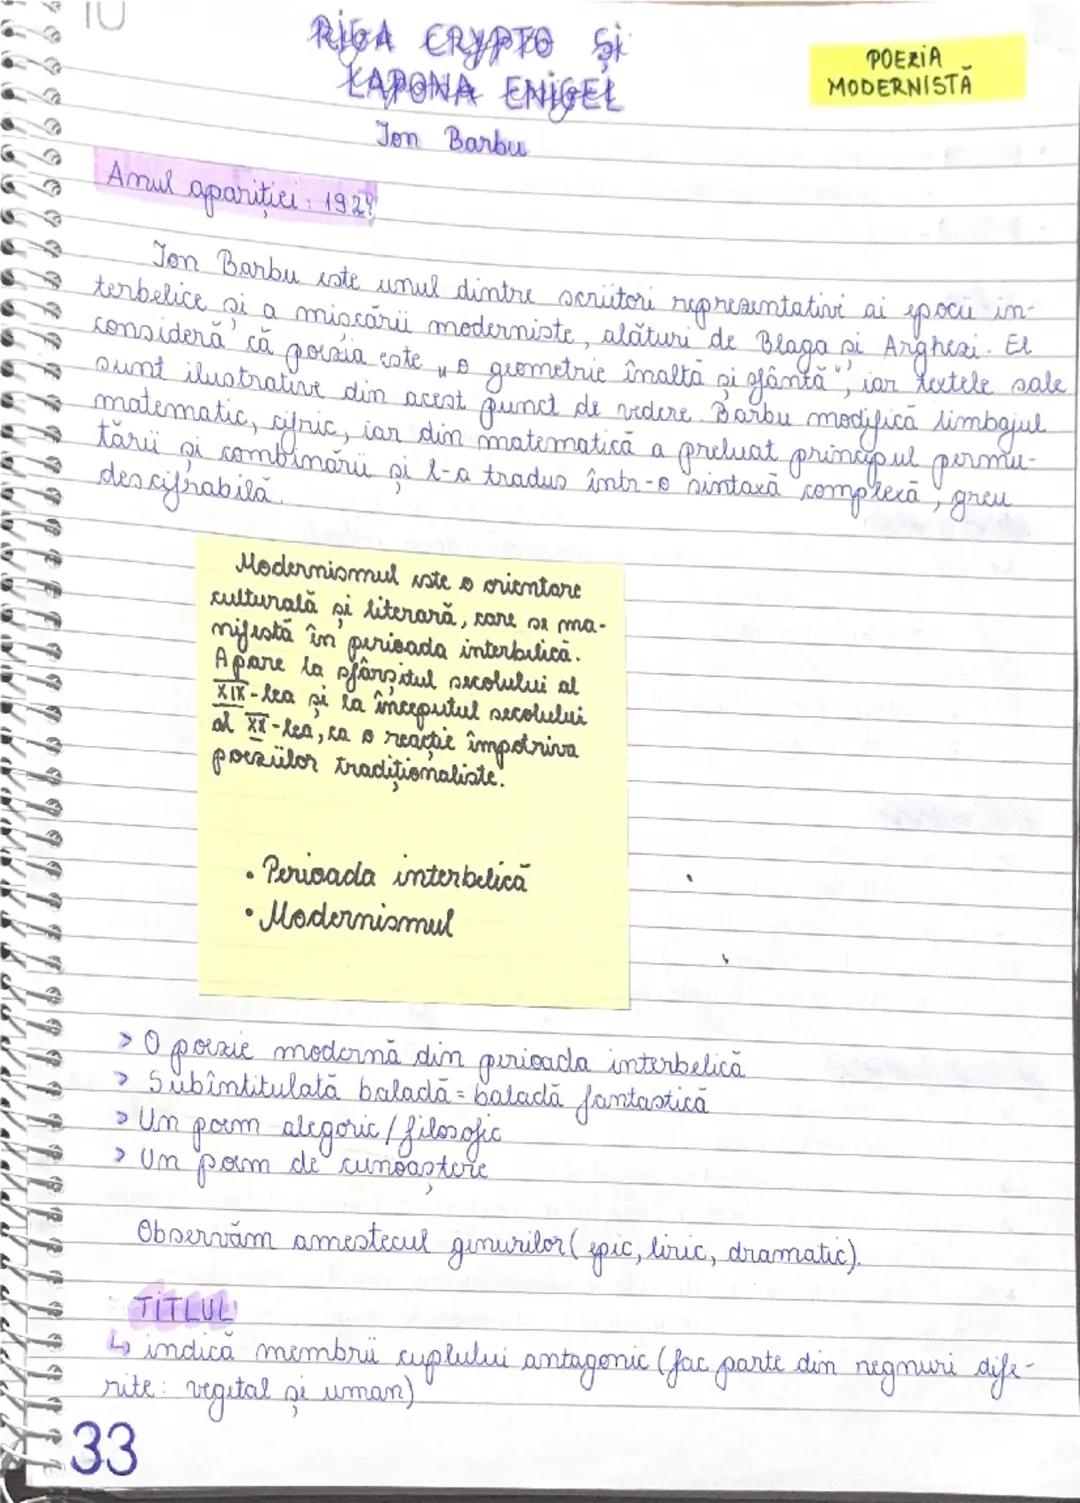 10
RIGA CRYPTO și
LAPONA ENIGEL
POEZIA
MODERNISTĂ
Ion Barbu
Anul apariției: 192?
Ion Barbu este unul dintre scriitori reprezentativi ai epocii in-
terbelice și a mișcării moderniste, alături de Blaga și Arghezi. El
consideră că poezia este „o geometrie înaltă și sfântă", iar textele sale
sunt ilustrative din acest punct de vedere. Barbu modifică limbajul
matematic, cifric, iar din matematică a preluat principul permu-
tării și combinării și l-a tradus într-o sintaxă complexă, greu
descifrabilă.
Modernismul este o orientare
culturală și literară, care se ma-
nifestă în perioada interbelică.
Apare la sfârșitul secolului al
XIX-lea și la începutul secolului
al XX-lea, ca o reacție împotriva
poeziilor tradiționaliste.
• Perioada interbelică
• Modernismul
> O poezie modernă din perioada interbelică
> Subîntitulată baladă = baladă fantastică
> Un poem alegoric / filosofic
> Un poem de cunoaștere
Observăm amestecul genurilor (epic, liric, dramatic).
TITLUL
↳ indică membrii cuplului antagonic (fac parte din regnuri dife-
rite: vegetal și uman)
33